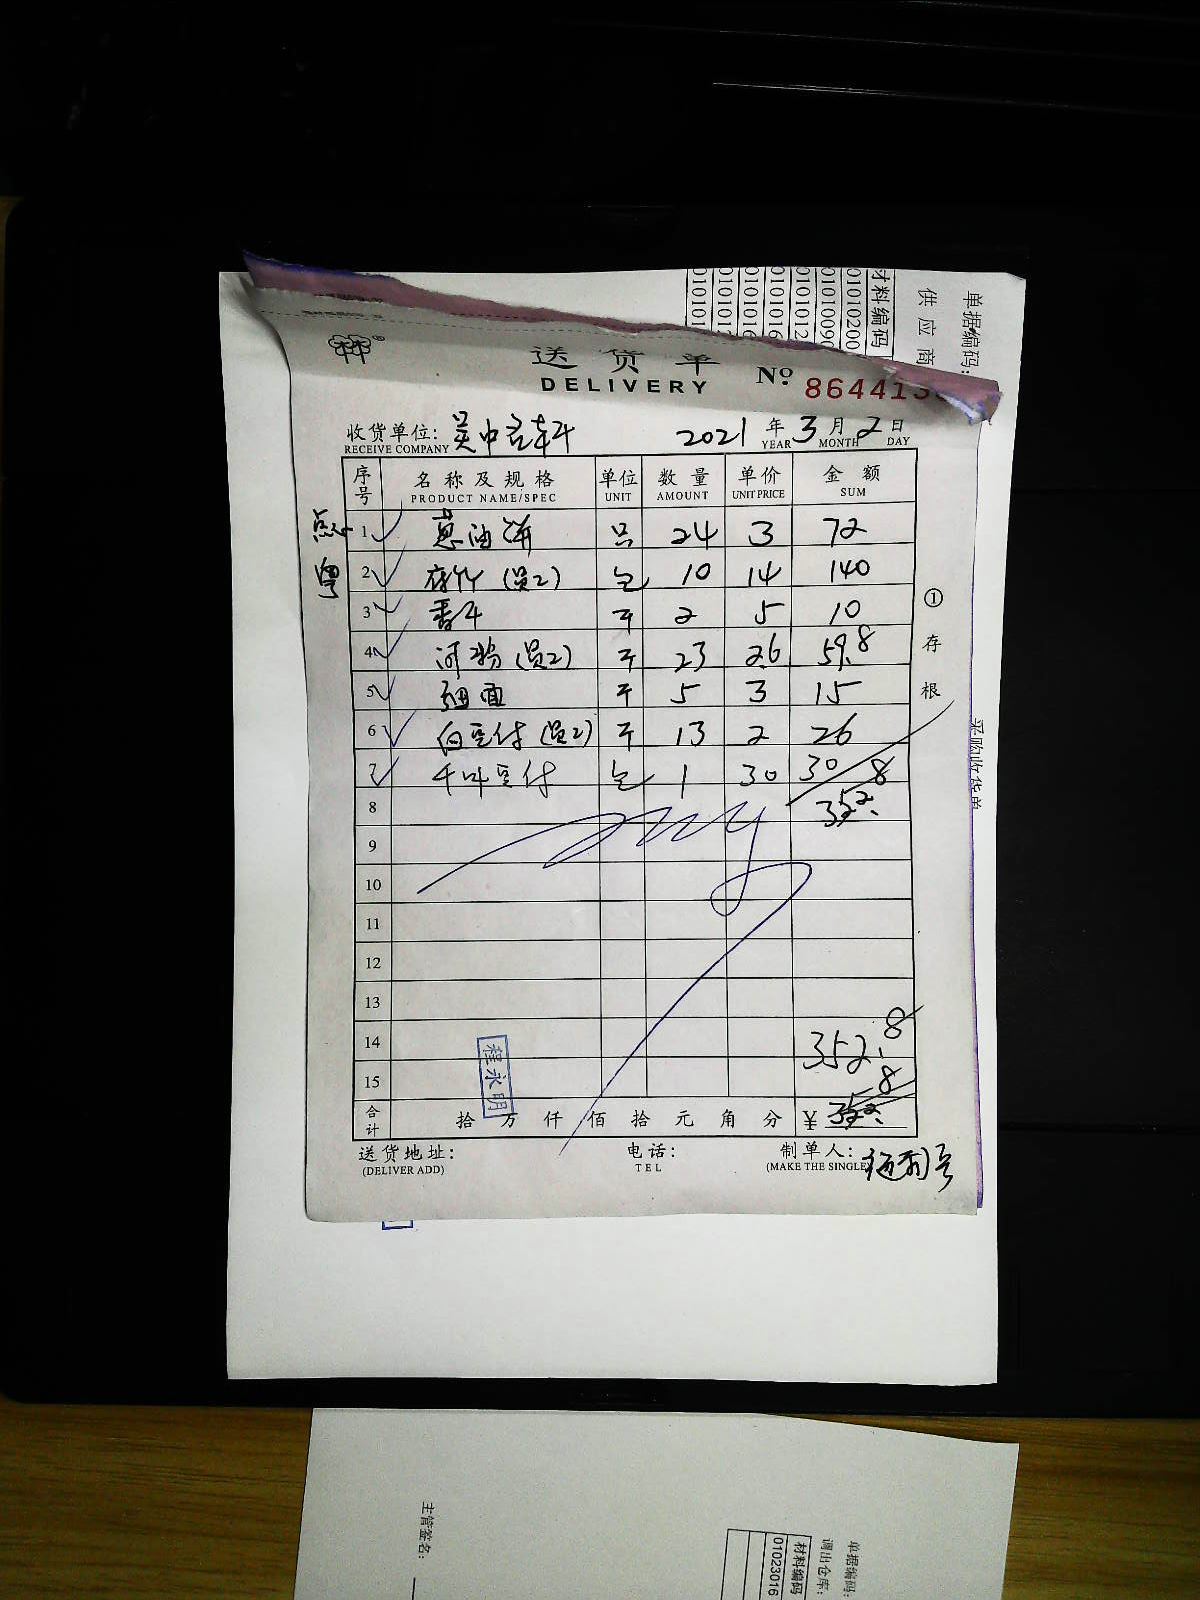 单据编码:
供应商
材料编码
01010200
0101009
0101012
0101016
0101016
010101
010101
送货单
DELIVERY
No. 864413
收货单位: 吴中 2021年3月2日
RECEIVE COMPANY YEAR MONTH DAY
序号 名称及规格 单位 数量 单价 金额
PRODUCT NAME/SPEC UNIT AMOUNT UNIT PRICE SUM
点心
1 葱油饼 只 24 3 72
粤
2 腐竹(员2) 包 10 14 140
3 香干 斤 2 5 10
4 河粉(员2) 斤 23 2.6 59.8
5 细面 斤 5 3 15
6 白豆付(员2) 斤 13 2 26
7 千叶豆付 包 1 30 30
8 352.8
9
10
11
12
13
14 352.8
15
合计 拾万仟佰拾元角分 ¥ 352.8
程永明
送货地址: 电话: 制单人:
(DELIVER ADD) TEL (MAKE THE SINGLE
①存根
采购收货单
主管签名:
单据编码:
调出仓库:
材料编码
01023016